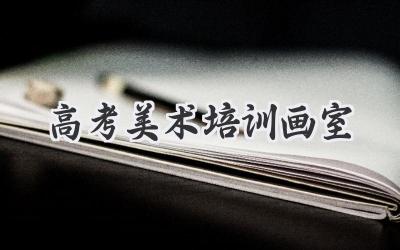 高考美术培训画室